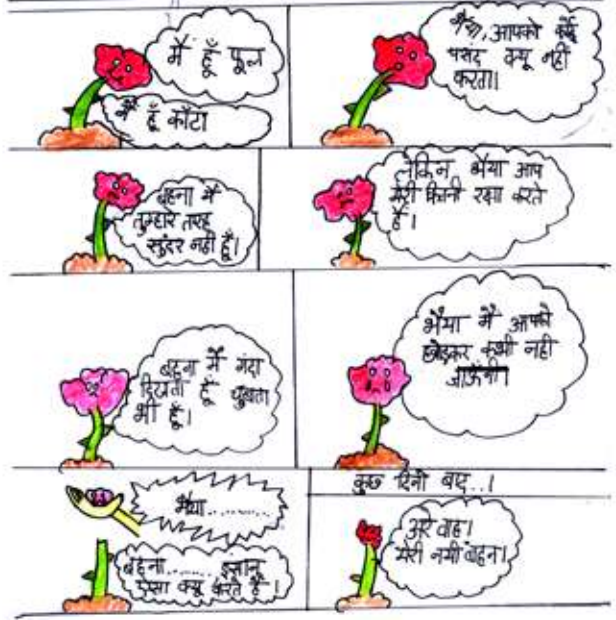 मैं हूँ फूल
मैं हूँ काँटा
भैया, आपको कोई
पसंद क्यू नहीं
करता।
बहना मैं
तुम्हारे तरह
सुंदर नहीं हूँ।
लेकिन भैया आप
मेरी कितनी रक्षा करते
हैं।
बहना मैं गंदा
दिखता हूँ चुभता
भी हूँ।
भैया मैं आपको
छोड़कर कभी नहीं
जाऊँगी।
भैया..........
बहना....... इन्सान
ऐसा क्यू करते हैं।
कुछ दिनों बाद..।
अरे वाह।
मेरी नयी बहन।